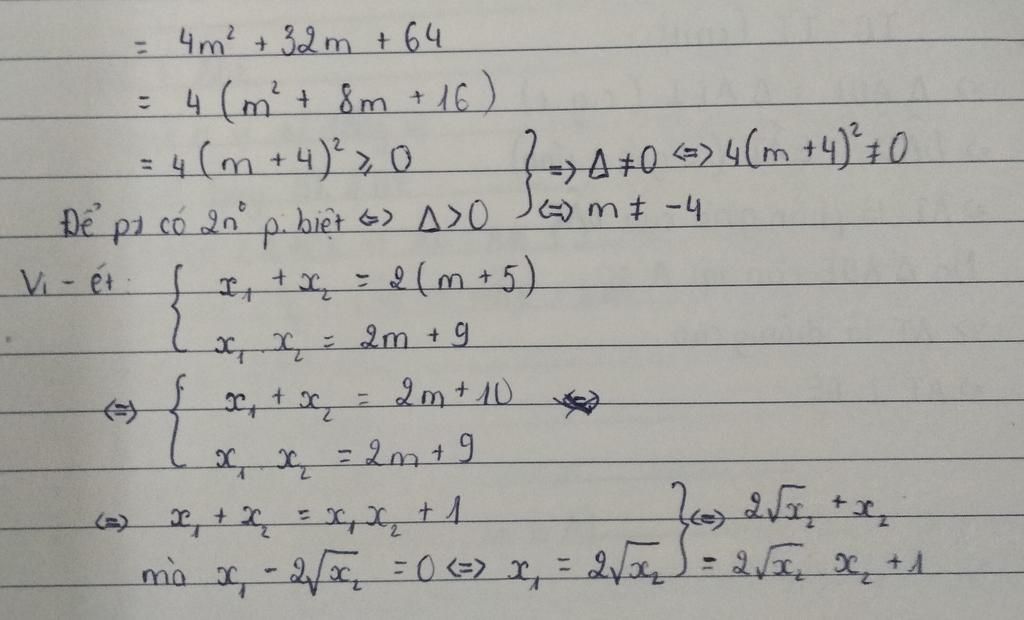 = 4m² + 32m + 64
= 4 (m² + 8m + 16)
= 4 (m + 4)² ⩾ 0 } => Δ ≠ 0 <=> 4(m + 4)² ≠ 0
Để pt có 2n⁰ p. biệt <=> Δ > 0 <=> m ≠ -4
Vi - ét: { x₁ + x₂ = 2 (m + 5)
x₁ x₂ = 2m + 9
<=> { x₁ + x₂ = 2m + 10
x₁ x₂ = 2m + 9
<=> x₁ + x₂ = x₁ x₂ + 1 } <=> 2√x₂ + x₂
mà x₁ - 2√x₂ = 0 <=> x₁ = 2√x₂ = 2√x₂ x₂ + 1